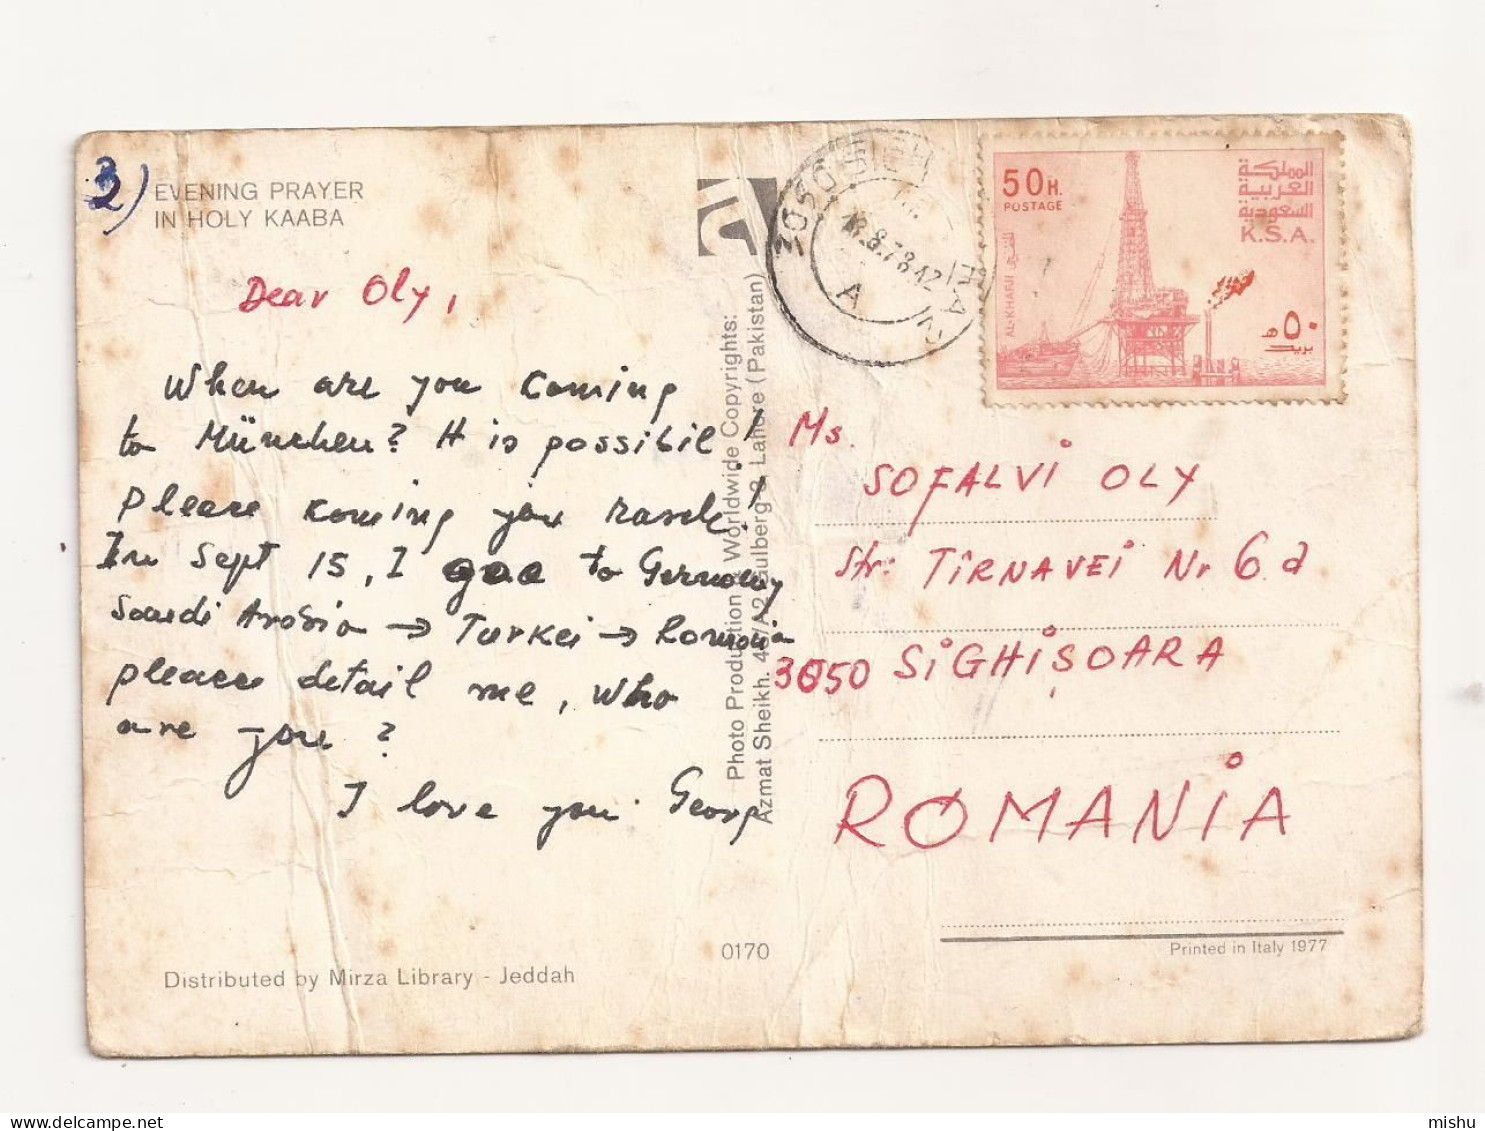 2)
EVENING PRAYER
IN HOLY KAABA
Dear Oly,
When are you coming
to München? It is possibil!
please koming you rasch!
In Sept 15, I goo to Germany
Saudi Arabia → Turkei → Romania
please detail me, who
are you?
I love you. Georg
Distributed by Mirza Library - Jeddah
0170
Photo Production & Worldwide Copyrights:
Azmat Sheikh. 4 /A2 Gulberg-3, Lahore (Pakistan)
3050 SIGHI
18.8.78.12
A
50H.
POSTAGE
المملكة
العربية
السعودية
K.S.A.
AL-KHAFJI الخفجي
٥٠
بريد
Ms.
SOFALVI OLY
Str: TÎRNAVEI Nr 6.a
3050 SIGHIŞOARA
ROMANIA
Printed in Italy 1977
delcampe.net
mishu